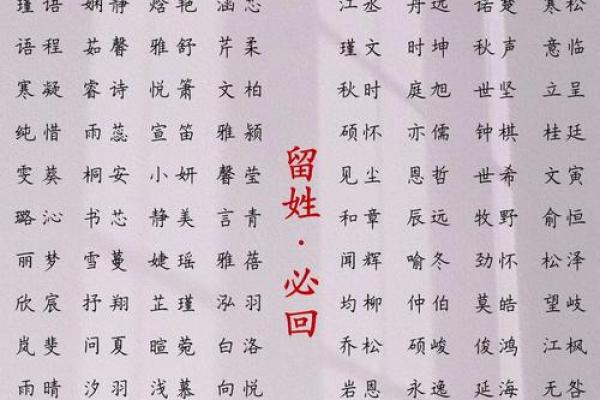 瑾语 娴静 焓艳 涵忆 江丞 丹远 诺楚 寒松
语程 茹馨 雅舒 芹柔 瑾文 时坤 秋声 意临
寒凝 睿诗 悦箫 文柏 秋时 庭旭 世坚 立呈
纯惜 雨蕊 宣笛 雅颍 硕怀 亦儒 钟棋 桂廷
雯葵 桐安 小妍 馨莹 见尘 恩哲 世希 文寅
璐沁 书芯 静美 言青 和章 辰远 牧野 俞恒
丽梦 雪蔓 婕瑶 雅蓓 闻辉 喻冬 劲怀 松泽
欣宸 抒翔 芷瑾 泓羽 均柳 仲伯 莫皓 望岐
岚斐 问夏 暄菀 白洛 乔松 硕峻 俊鸿 江枫
雨晴 汐羽 浅慕 向悦 岩恩 永逸 延海 无恙
留姓·必回